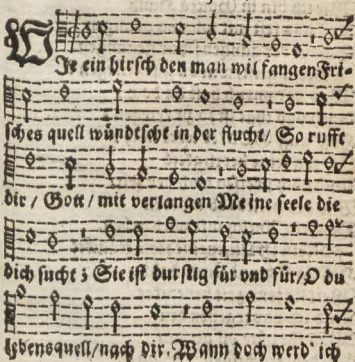 WJe ein hirsch den man wil fangen Fri-
sches quell wündtscht in der flucht/ So rufft
dir / Gott / mit verlangen Meine seele die
dich sucht; Sie ist durstig für vnd für/ O du
lebensquell/nach dir. Wann doch werd' ich